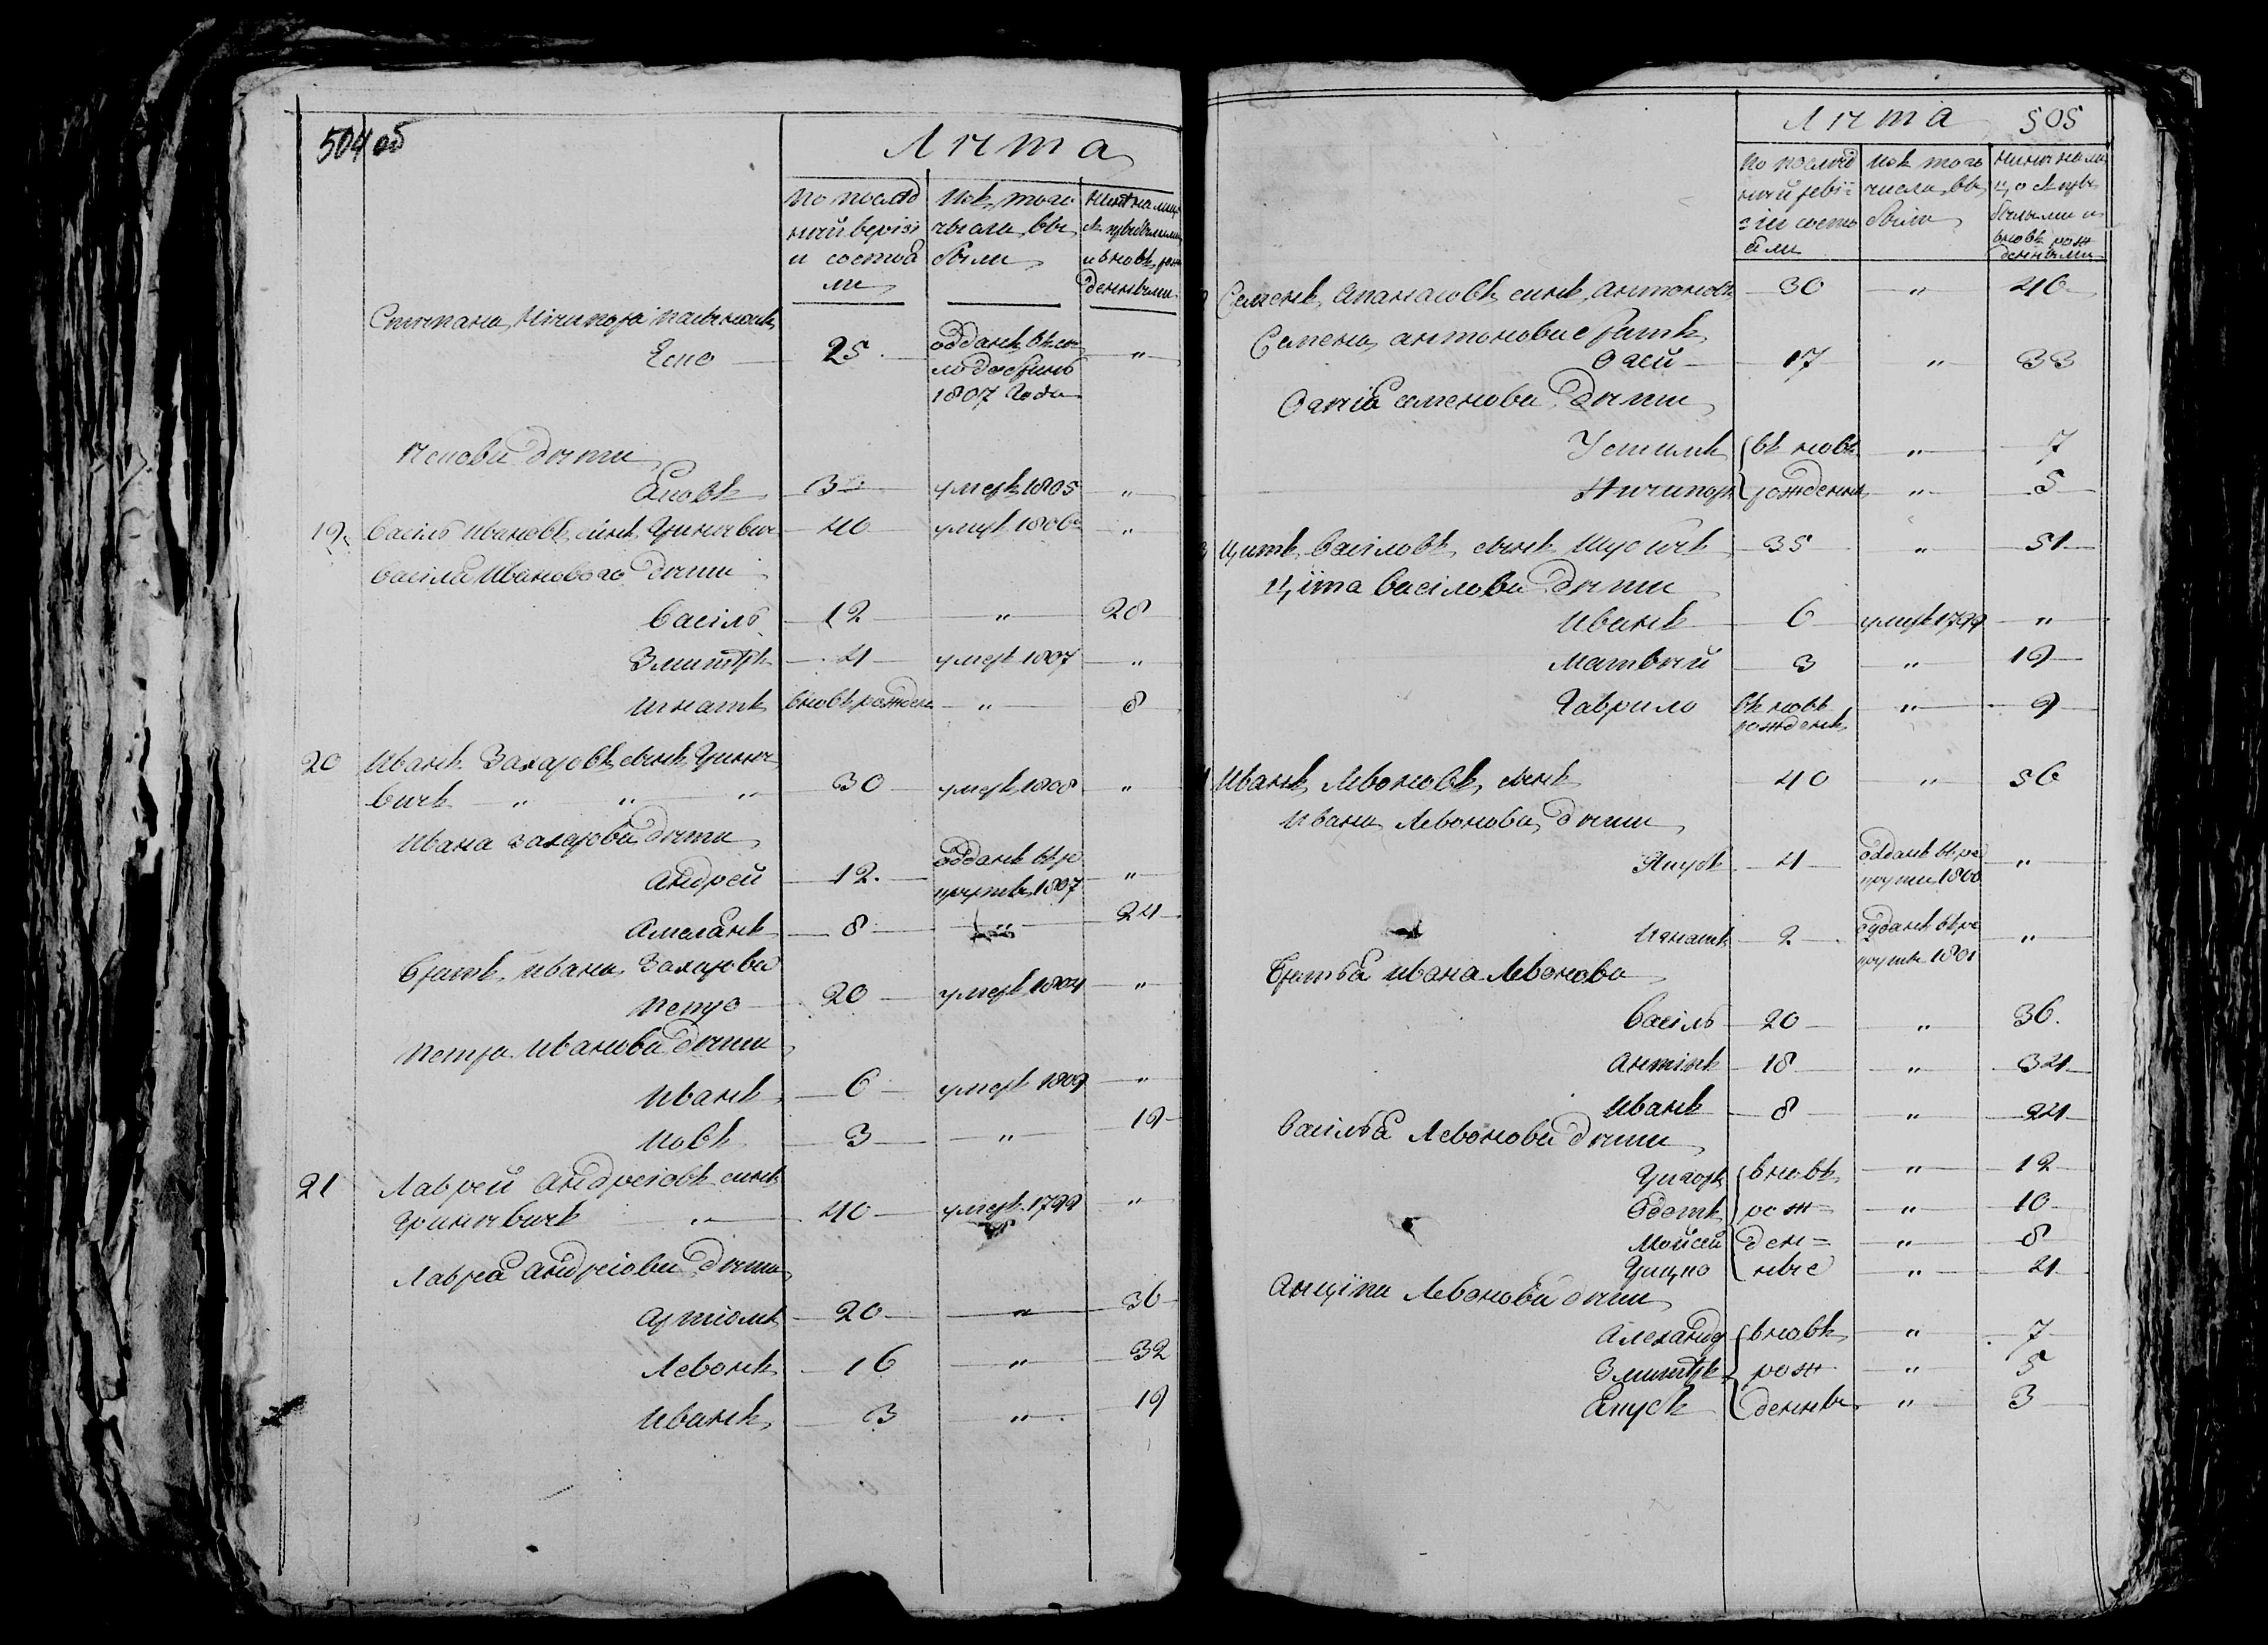 504 об
Лѣта
по послѣд
ней ревизі
и состоя
ли
изъ того
числа вы
были
ныне на лицо
съ прибылыми
и вновь рож
денными
Степана Нічипора пасынокъ
Есно 25 отданъ въ
1807 года "
дѣти
Яковъ 3 умеръ 1805 "
19 Василь Ивановъ сынъ Гриневич 40 умеръ 1806 "
Василя Иванового дѣти
Василь 12 " 28
Змитръ 4 умеръ 1807 "
Игнатъ вновь рожден " 8
20 Иванъ Захаровъ сынъ Грине
вичъ " " " 30 умеръ 1808 "
Ивана Захарова дѣти
Андрей 12 отданъ въ ре
круты 1807 "
Амелянъ 8 " 24
Братъ Ивана Захарова
Петро 20 умеръ 1804 "
Петра Иванова дѣти
Иванъ 6 умеръ 1809 "
Іовъ 3 " 19
21 Лаврей Андреіовъ сынъ
Гриневичъ " 40 умеръ 1799 "
Лаврея Андреіова дѣти
Артіомъ 20 " 36
Левонъ 16 " 32
Иванъ 3 " 19
Лѣта 505
по послѣд
ней реві=
зіи состо
яли
изъ того
числа вы
были
ныне на ли
цо съ при
былыми и
вновь рож
денными
Семенъ Апанасовъ синъ Антонов 30 " 46
Семена Антонова братъ
Овсей 17 " 33
дѣти
Устимъ въ новь " 7
Ничипоръ рождены " 5
Цитъ Василовъ сынъ 35 " 51
Ціта Василова дѣти
Иванъ 6 умеръ 1799 "
Матвѣй 3 " 19
Гаврило въ новь
рожденъ " 9
Иванъ Левоновъ сынъ 40 " 56
Ивана Левонова дѣти
Якубъ 4 отданъ въ ре
круты 1800 "
Игнатъ 2 отданъ въ ре
круты 1801 "
Братья Ивана Левонова
Василь 20 " 36
Антіпъ 18 " 34
Иванъ 8 " 24
Василья Левонова дѣти
Григоръ вновь " 12
рож= " 10
Мойсей ден= " 8
Грицко ные " 4
Левонова дѣти
Алехандр вновь " 7
Змитръ рож " 5
Якубъ денны " 3